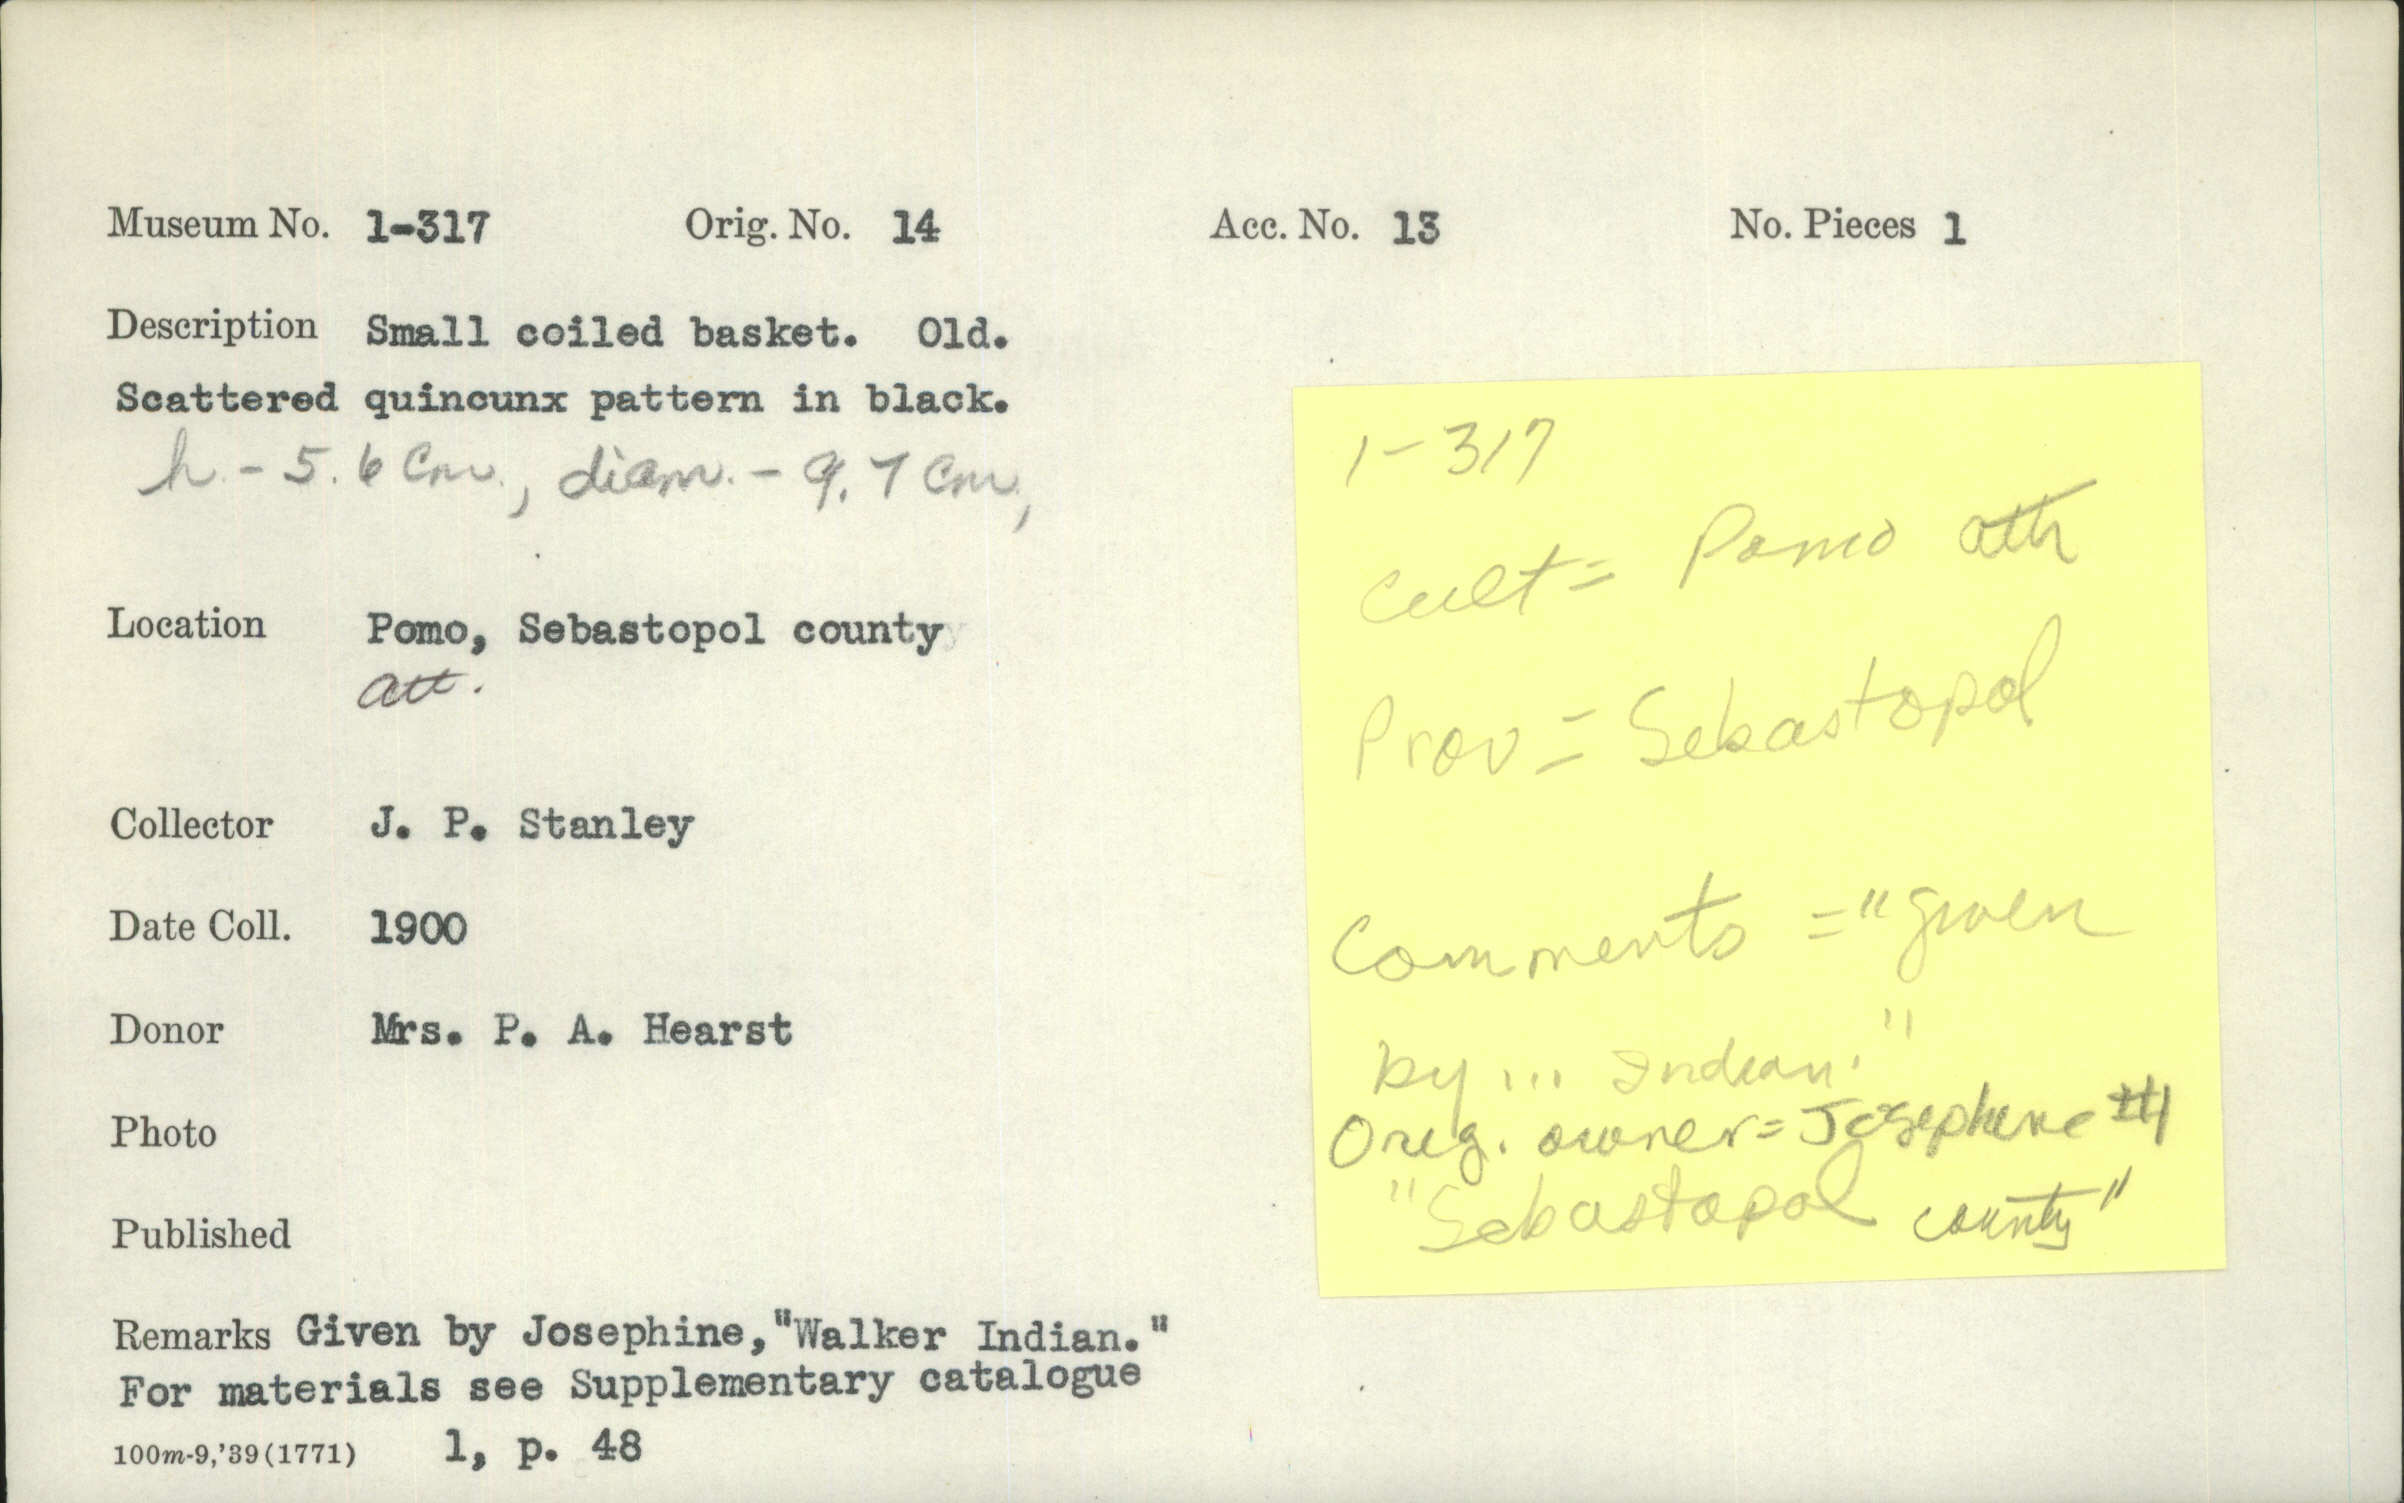 Museum No. 1-317 Orig. No. 14 Acc. No. 13 No. Pieces 1
Description Small coiled basket. Old.
Scattered quincunx pattern in black.
h. - 5.6 cm., diam. - 9.7 cm.,
Location Pomo, Sebastopol county
att.
Collector J. P. Stanley
Date Coll. 1900
Donor Mrs. P. A. Hearst
Photo
Published
Remarks Given by Josephine, "Walker Indian."
For materials see Supplementary catalogue
100m-9,'39(1771) 1, p. 48
1-317
Cult = Pomo att
Prov = Sebastopol
Comments = "given
by ... Indian."
Orig. owner = Josephine #1
"Sebastopol county"